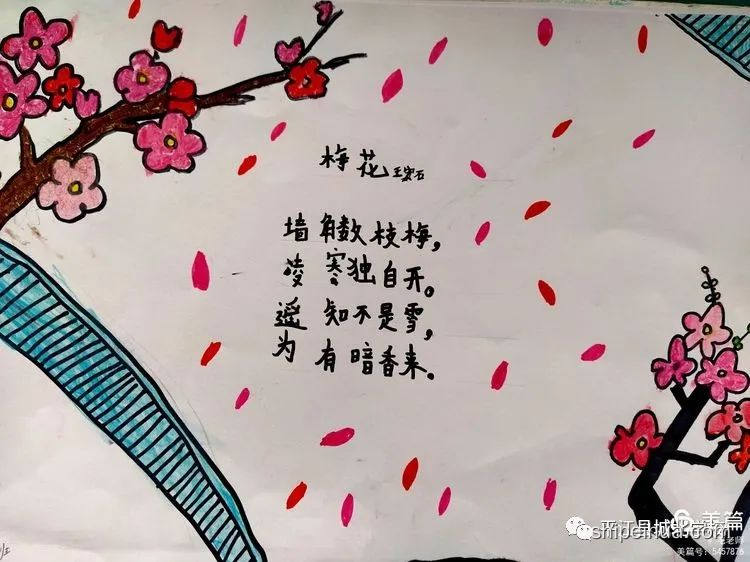 梅花 王安石
墙角数枝梅，
凌寒独自开。
遥知不是雪，
为有暗香来。
班
美篇
shipeihua.com
美篇号：5457876